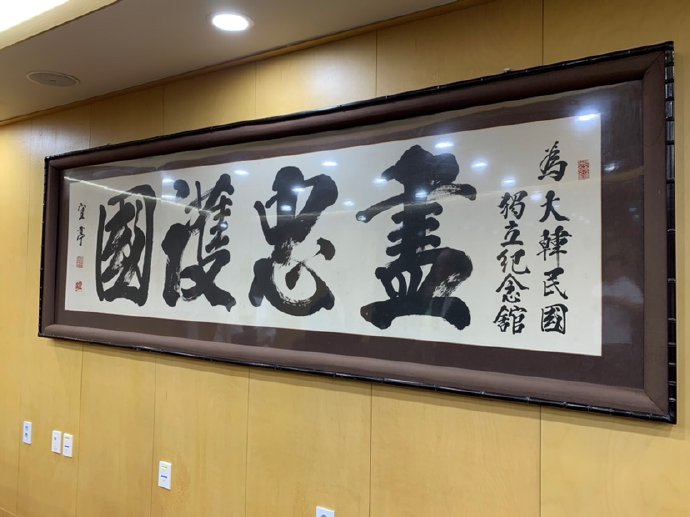 為大韓民國
獨立紀念館
盡忠護國